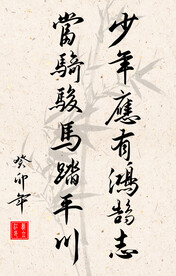 少年應有鴻鵠志
當騎駿馬踏平川
癸卯年